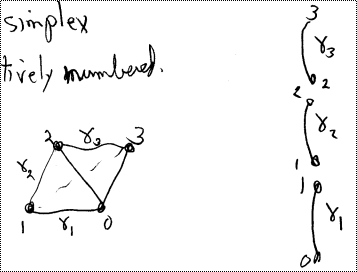 simplex
tively numbered.
2 γ3 3
γ2
1 γ1 0
3
γ3
2
2
γ2
1
1
γ1
0